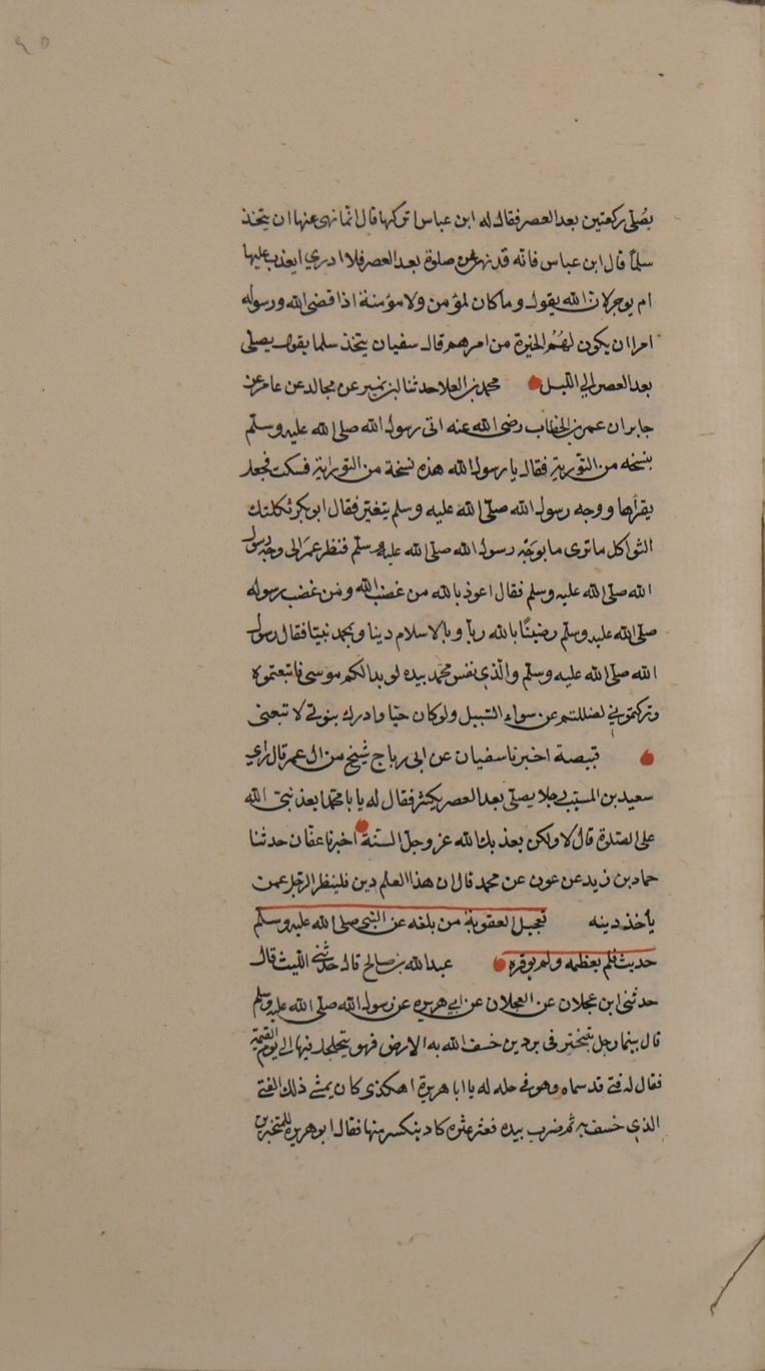 ٩٥
يصلي ركعتين بعد العصر فقال له ابن عباس اتركها قال انما نهى عنها ان يتخذ
سلما قال ابن عباس فانه قد نهى عن صلوة بعد العصر فلا ادري ايعذب عليها
ام يوجر لان الله يقول وما كان لمؤمن ولا مؤمنة اذا قضى الله ورسوله
امرا ان يكون لهم الخيرة من امرهم قال سفيان يتخذ سلما يقول يصلي
بعد العصر الى الليل محمد بن العلا حدثنا ابن نمير عن مجالد عن عامر عن
جابر ان عمر بن الخطاب رضى الله عنه اتى رسول الله صلى الله عليه وسلم
بنسخه من التورية فقال يا رسول الله هذه نسخة من التوراية فسكت فجعل
يقرأها ووجه رسول الله صلى الله عليه وسلم يتغير فقال ابو بكر ثكلتك
الثواكل ما ترى ما بوجه رسول الله صلى الله عليه وسلم فنظر عمر الى وجه رسول
الله صلى الله عليه وسلم فقال اعوذ بالله من غضب الله ومن غضب رسوله
صلى الله عليه وسلم رضينا بالله ربا وبالاسلام دينا وبمحمد نبيا فقال رسول
الله صلى الله عليه وسلم والذي نفس محمد بيده لو بدا لكم موسى فاتبعتموه
وتركتموني لضللتم عن سواء السبيل ولو كان حيا وادرك بنوتي لا تبعنى
قبيصة اخبرنا سفيان عن ابى رباح شيخ من ال عمر قال راي
سعيد بن المسيب رجلا يصلي بعد العصر يكثر فقال له يا با محمد ايعذبنى الله
على الصلوة قال لا ولكن يعذبك الله عز وجل السنة اخبرنا عفان حدثنا
حماد بن زيد عن عون عن محمد قال ان هذا العلم دين فلينظر الرجل عمن
يأخذ دينه تعجيل العقوبة من بلغه عن النبي صلى الله عليه وسلم
حديث فلم يعظمه ولم يوقره عبد الله بن صالح قال حدثني الليث قال
حدثنى ابن عجلان عن العجلان عن ابي هريره عن رسول الله صلى الله عليه وسلم
قال بينما رجل يتبختر فى بردين خسف الله به الارض فهو يتجلجل فيها الى يوم القيمة
فقال له فتى قد سماه وهو في حله له يا ابا هريرة اهكذى كان يمشي ذلك الفتى
الذي خسف به ثم ضرب بيده فعثر عثره كاد ينكسر منها فقال ابو هريره للمنخرين